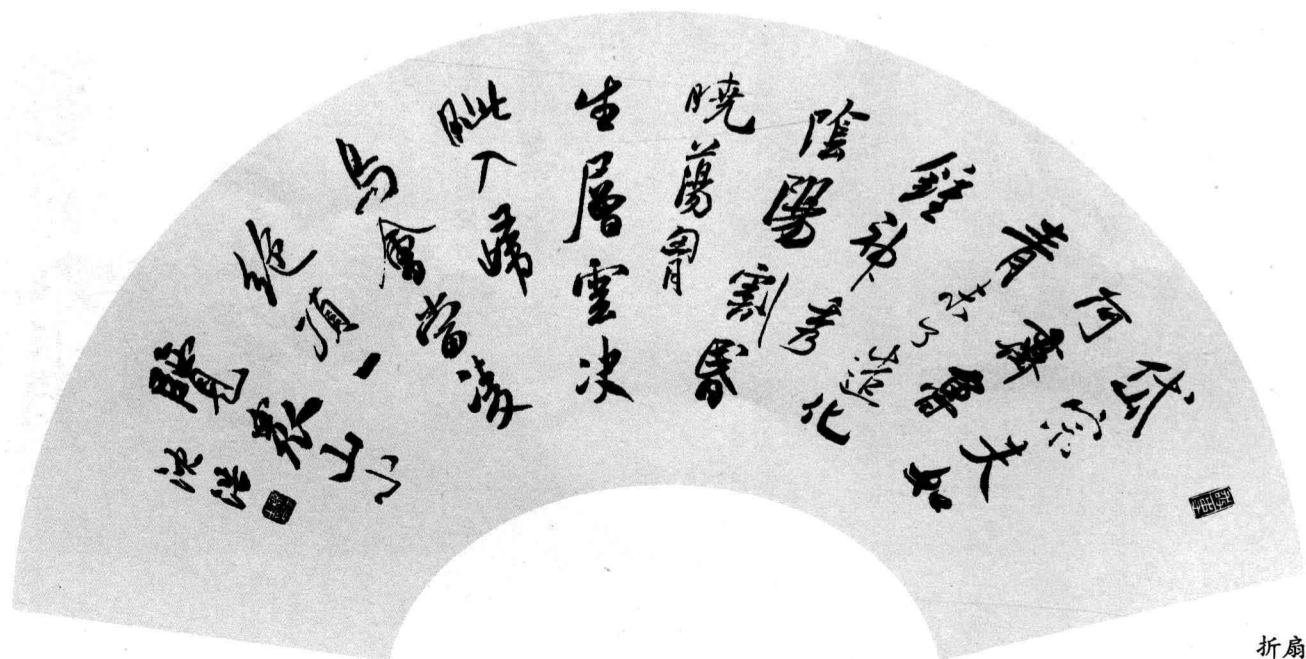 岱宗夫如
何齊魯
青未了造化
鍾神秀
陰陽割昏
曉蕩胷
生層雲决
眦入歸
鳥會當凌
絕頂一
覽衆山小
沈浩
折扇